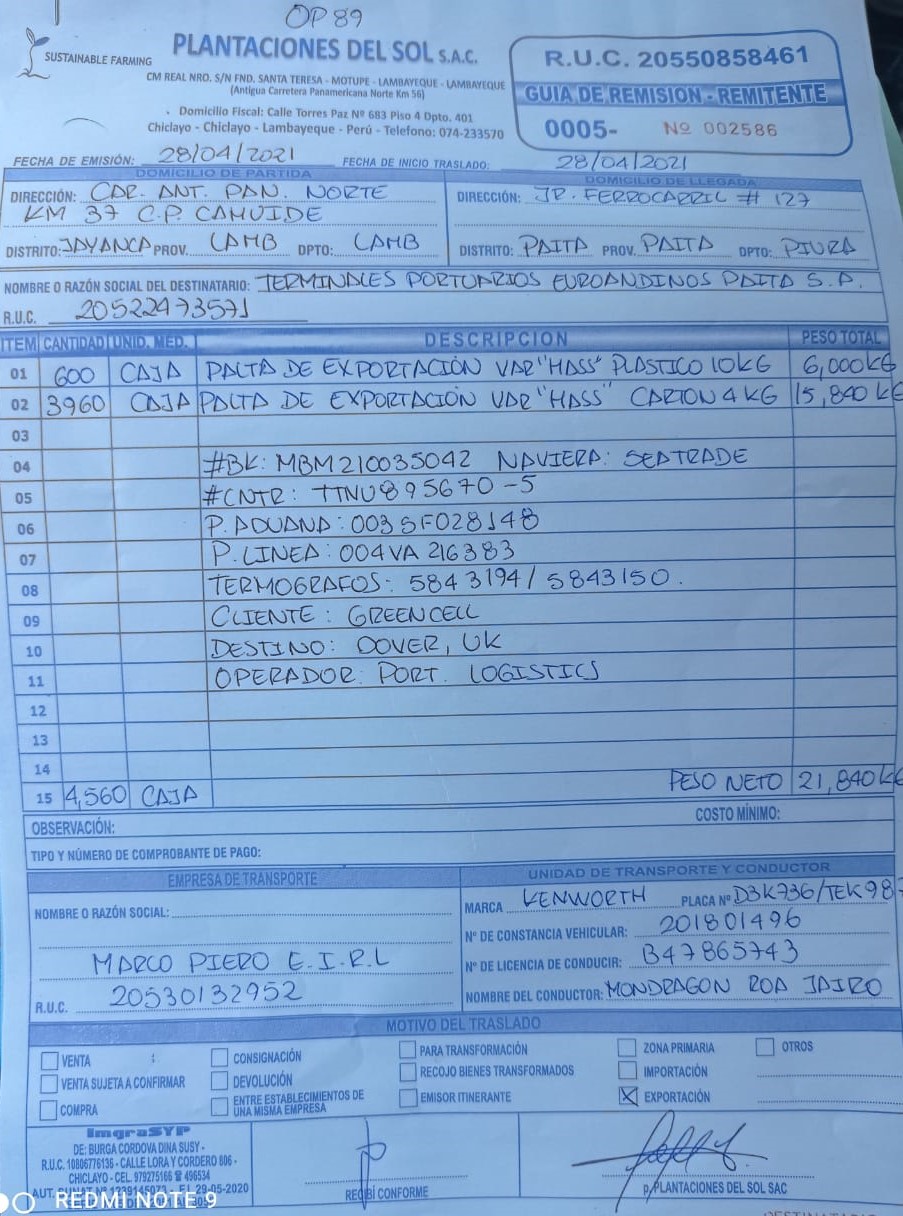 OP 89
SUSTAINABLE FARMING
PLANTACIONES DEL SOL S.A.C.
CM REAL NRO. S/N FND. SANTA TERESA - MOTUPE - LAMBAYEQUE - LAMBAYEQUE
(Antigua Carretera Panamericana Norte Km 56)
Domicilio Fiscal: Calle Torres Paz Nº 683 Piso 4 Dpto. 401
Chiclayo - Chiclayo - Lambayeque - Perú - Telefono: 074-233570
R.U.C. 20550858461
GUIA DE REMISION - REMITENTE
0005- Nº 002586
FECHA DE EMISIÓN: 28/04/2021 FECHA DE INICIO TRASLADO: 28/04/2021
DOMICILIO DE PARTIDA
DIRECCIÓN: CAR. ANT. PAN. NORTE
KM 37 C.P. CAHUIDE
DISTRITO: JAYANCA PROV. LAMB DPTO: LAMB
DOMICILIO DE LLEGADA
DIRECCIÓN: JR. FERROCARRIL # 127
DISTRITO: PAITA PROV. PAITA DPTO: PIURA
NOMBRE O RAZÓN SOCIAL DEL DESTINATARIO: TERMINALES PORTUARIOS EUROANDINOS PAITA S.A.
R.U.C. 20522473571
ITEM CANTIDAD UNID. MED. DESCRIPCION PESO TOTAL
01 600 CAJA PALTA DE EXPORTACIÓN VAR "HASS" PLASTICO 10KG 6,000KG
02 3960 CAJA PALTA DE EXPORTACIÓN VAR "HASS" CARTON 4 KG 15,840 KG
03
04 #BK: MBM210035042 NAVIERA: SEATRADE
05 #CNTR: TTNU895670-5
06 P. ADUANA: 003SF028148
07 P. LINEA: 004VA 216383
08 TERMOGRAFOS: 5843194/5843150.
09 CLIENTE: GREENCELL
10 DESTINO: DOVER, UK
11 OPERADOR: PORT. LOGISTICS
12
13
14
15 4,560 CAJA PESO NETO 21,840KG
OBSERVACIÓN: COSTO MÍNIMO:
TIPO Y NÚMERO DE COMPROBANTE DE PAGO:
EMPRESA DE TRANSPORTE
NOMBRE O RAZÓN SOCIAL:
MARCO PIERO E.I.R.L
R.U.C. 20530132952
UNIDAD DE TRANSPORTE Y CONDUCTOR
MARCA KENWORTH PLACA Nº D3K736/TEK987
Nº DE CONSTANCIA VEHICULAR: 201801496
Nº DE LICENCIA DE CONDUCIR: B47865743
NOMBRE DEL CONDUCTOR: MONDRAGON ROA JAIRO
MOTIVO DEL TRASLADO
VENTA CONSIGNACIÓN PARA TRANSFORMACIÓN ZONA PRIMARIA OTROS
VENTA SUJETA A CONFIRMAR DEVOLUCIÓN RECOJO BIENES TRANSFORMADOS IMPORTACIÓN
COMPRA ENTRE ESTABLECIMIENTOS DE UNA MISMA EMPRESA EMISOR ITINERANTE EXPORTACIÓN
ImgraSYP
DE: BURGA CORDOVA DINA SUSY -
R.U.C. 10806776136 - CALLE LORA Y CORDERO 806 -
CHICLAYO - CEL. 979275166 496534
RECIBÍ CONFORME
P. PLANTACIONES DEL SOL SAC
REDMI NOTE 9